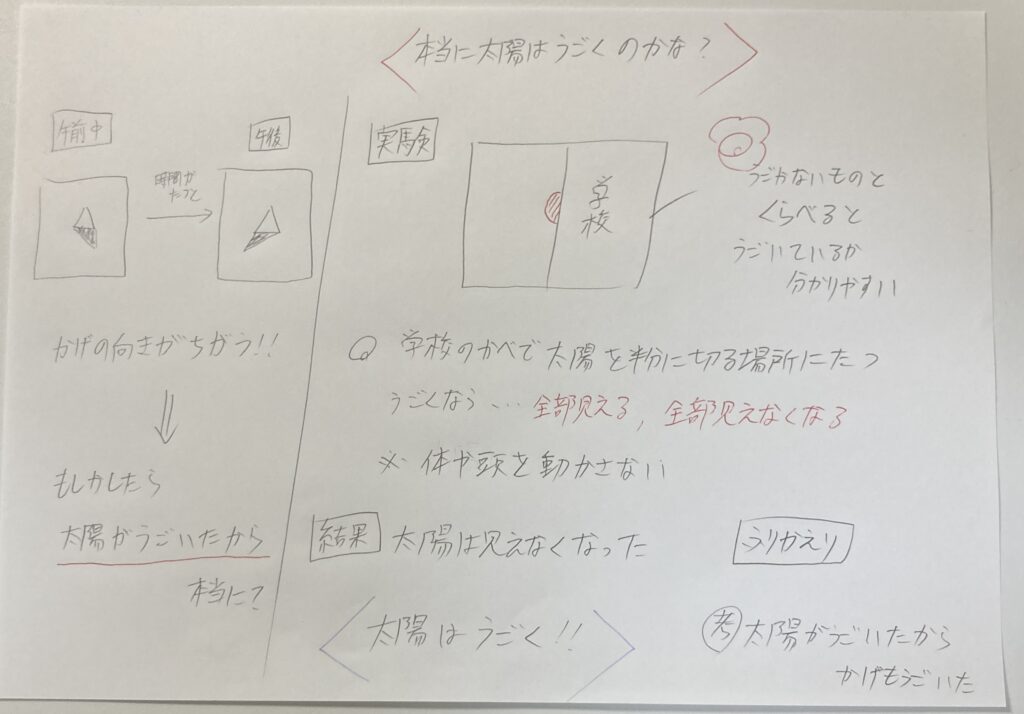 本当に太陽はうごくのかな?
午前中
時間が
たつと
午後
かげの向きがちがう!!
もしかしたら
太陽がうごいたから
本当に?
実験
学校
うごかないものと
くらべると
うごいているか
分かりやすい
学校のかべで太陽を半分に切る場所にたつ
うごくなら…全部見える,全部見えなくなる
※体や頭を動かさない
結果 太陽は見えなくなった
太陽はうごく!!
ふりかえり
考 太陽がうごいたから
かげもうごいた